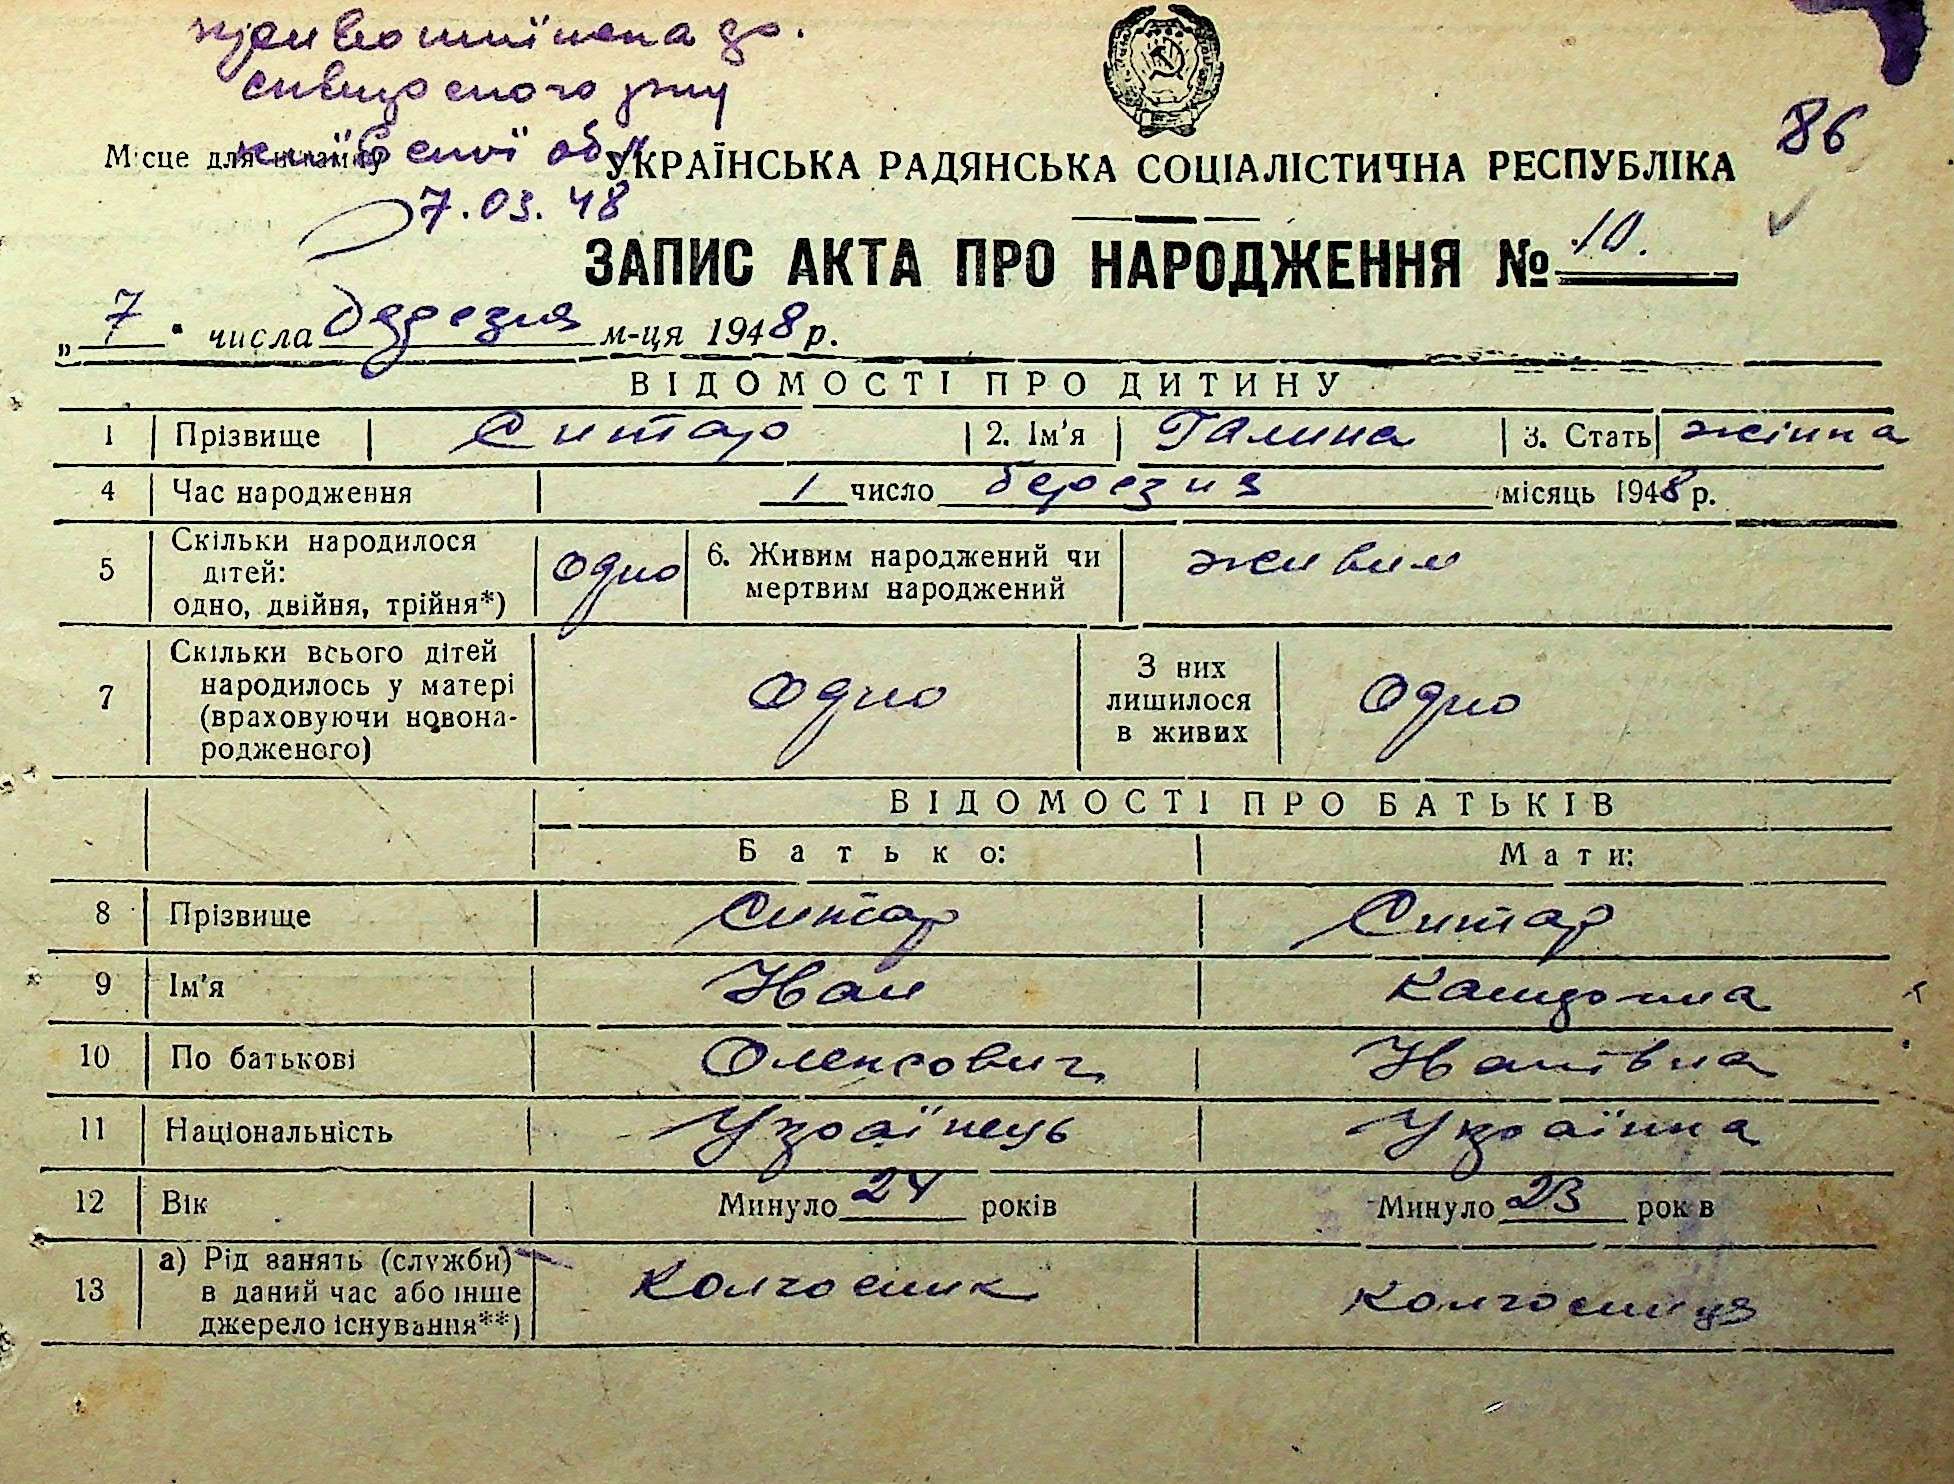 до
Місце для штампу
86
УКРАЇНСЬКА РАДЯНСЬКА СОЦІАЛІСТИЧНА РЕСПУБЛІКА
7.03.48
ЗАПИС АКТА ПРО НАРОДЖЕННЯ № 10.
„7" числа березня м-ця 1948 р.
ВІДОМОСТІ ПРО ДИТИНУ
1 Прізвище Ситар 2. Ім'я Галина 3. Стать жіноча
4 Час народження 1 число березня місяць 1948 р.
5 Скільки народилося дітей: одно, двійня, трійня*) одно 6. Живим народжений чи мертвим народжений живим
7 Скільки всього дітей народилось у матері (враховуючи новонародженого) Одно З них лишилося в живих Одно
ВІДОМОСТІ ПРО БАТЬКІВ
Батько: Мати:
8 Прізвище Ситар Ситар
9 Ім'я Іван
10 По батькові Олексович Іванівна
11 Національність Українець Українка
12 Вік Минуло 24 років Минуло 23 років
13 а) Рід занять (служби) в даний час або інше джерело існування**) Колгосник колгосниця